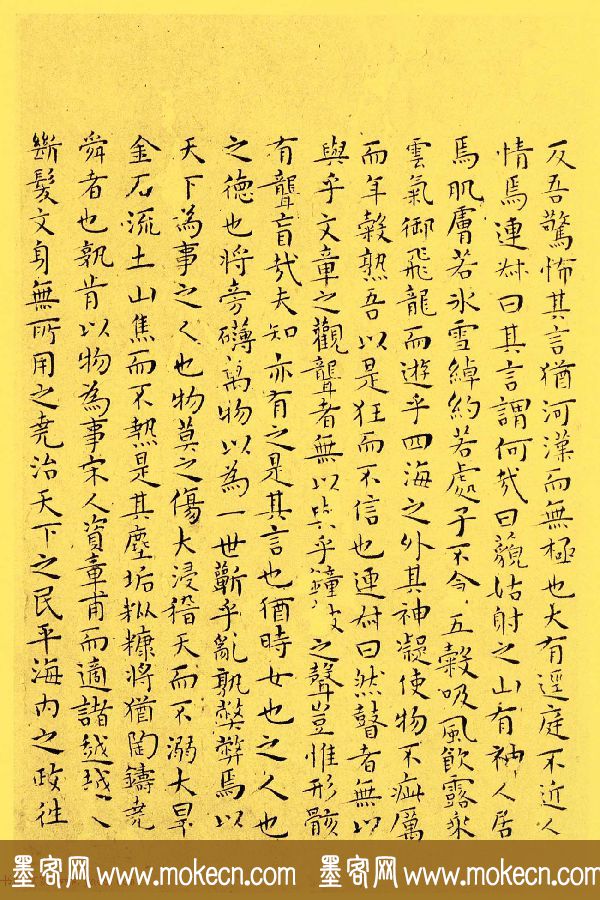 反吾驚怖其言猶河漢而無極也大有逕庭不近人
情焉連叔曰其言謂何哉曰藐姑射之山有神人居
焉肌膚若冰雪綽約若處子不食五穀吸風飲露乘
雲氣御飛龍而遊乎四海之外其神凝使物不疵厲
而年穀熟吾以是狂而不信也連叔曰然瞽者無以
與乎文章之觀聾者無以與乎鐘鼓之聲豈惟形骸
有聾盲哉夫知亦有之是其言也猶時女也之人也
之德也將旁礴萬物以為一世蘄乎亂孰弊弊焉以
天下為事之人也物莫之傷大浸稽天而不溺大旱
金石流土山焦而不熱是其塵垢粃糠將猶陶鑄堯
舜者也孰肯以物為事宋人資章甫而適諸越越人
斷髮文身無所用之堯治天下之民平海內之政往
墨客网 www.mokecn.com 墨客网 www.mokecn.com